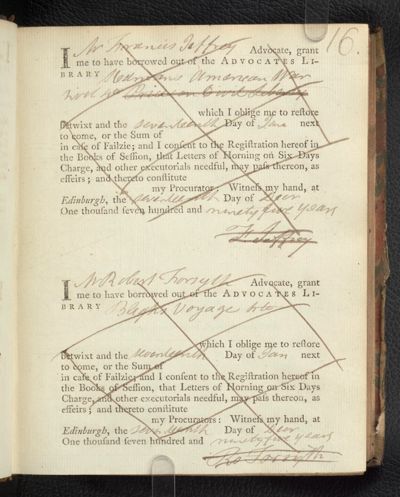 16.
I Mr Francis Jeffrey Advocate, grant
me to have borrowed out of the ADVOCATES LI-
BRARY American War
which I oblige me to reſtore
betwixt and the Seventeenth Day of Jan next
to come, or the Sum of
in caſe of Failzie; and I conſent to the Regiſtration hereof in
the Books of Seſſion, that Letters of Horning on Six Days
Charge, and other executorials needful, may paſs thereon, as
effeirs; and thereto conſtitute
my Procurator: Witneſs my hand, at
Edinburgh, the Seventeenth Day of Decr
One thouſand ſeven hundred and ninety five years
F. Jeffrey
I Mr Robert Forsyth Advocate, grant
me to have borrowed out of the ADVOCATES LI-
BRARY Blighs Voyage 4to
which I oblige me to reſtore
betwixt and the Seventeenth Day of Jan next
to come, or the Sum of
in caſe of Failzie; and I conſent to the Regiſtration hereof in
the Books of Seſſion, that Letters of Horning on Six Days
Charge, and other executorials needful, may paſs thereon, as
effeirs; and thereto conſtitute
my Procurators: Witneſs my hand, at
Edinburgh, the Seventeenth Day of Decr
One thouſand ſeven hundred and ninety five years
Ro Forsyth